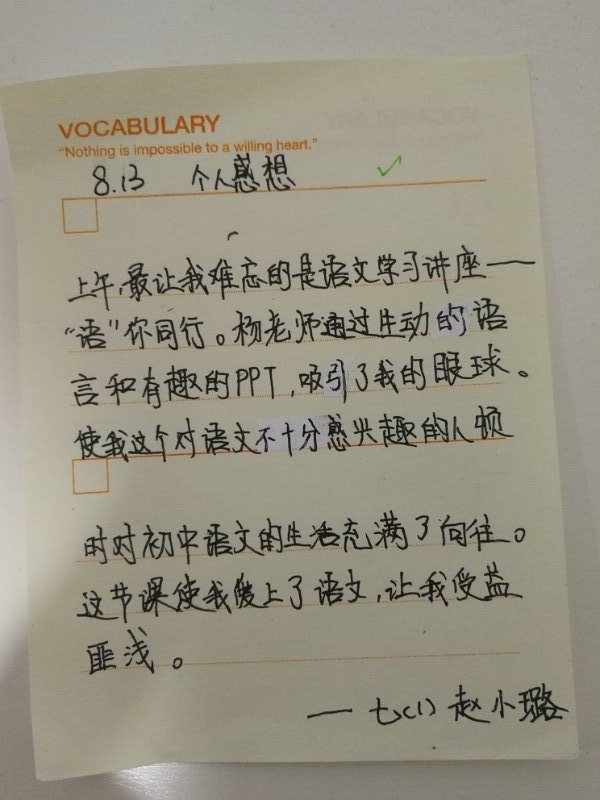 VOCABULARY
“Nothing is impossible to a willing heart.”
8.13 个人感想
上午,最让我难忘的是语文学习讲座——
“语”你同行。杨老师通过生动的语
言和有趣的PPT,吸引了我的眼球。
使我这个对语文不十分感兴趣的人顿
时对初中语文的生活充满了向往。
这节课使我爱上了语文,让我受益
匪浅。
——七(1) 赵小璐